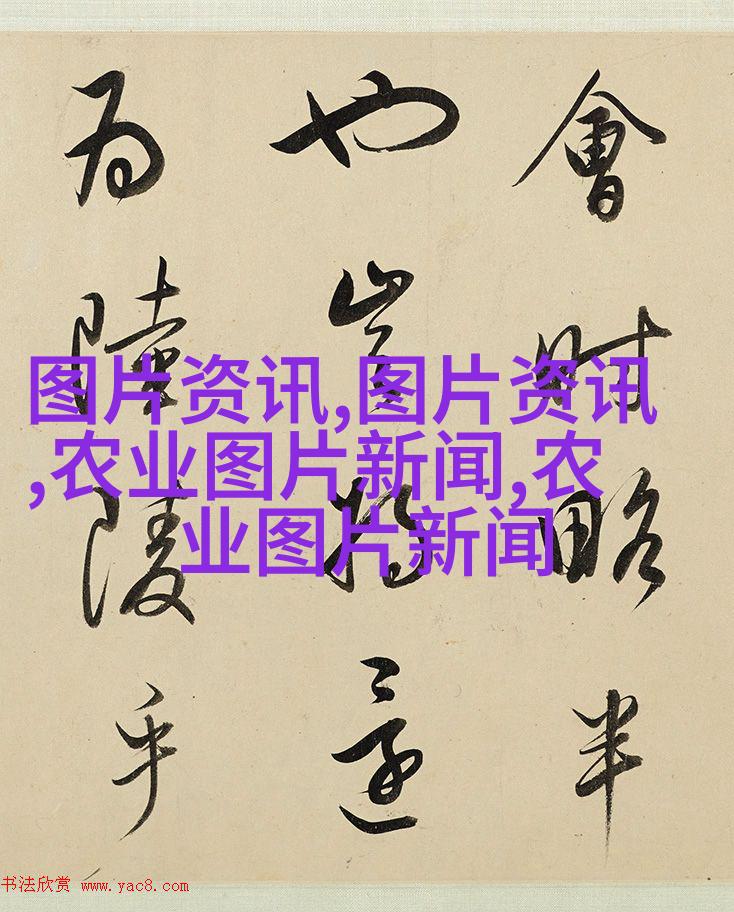 會 略半
也豈
為 陵乎
图片资讯,图片资讯
,农业图片新闻,农
业图片新闻
书法欣赏 www.yac8.com